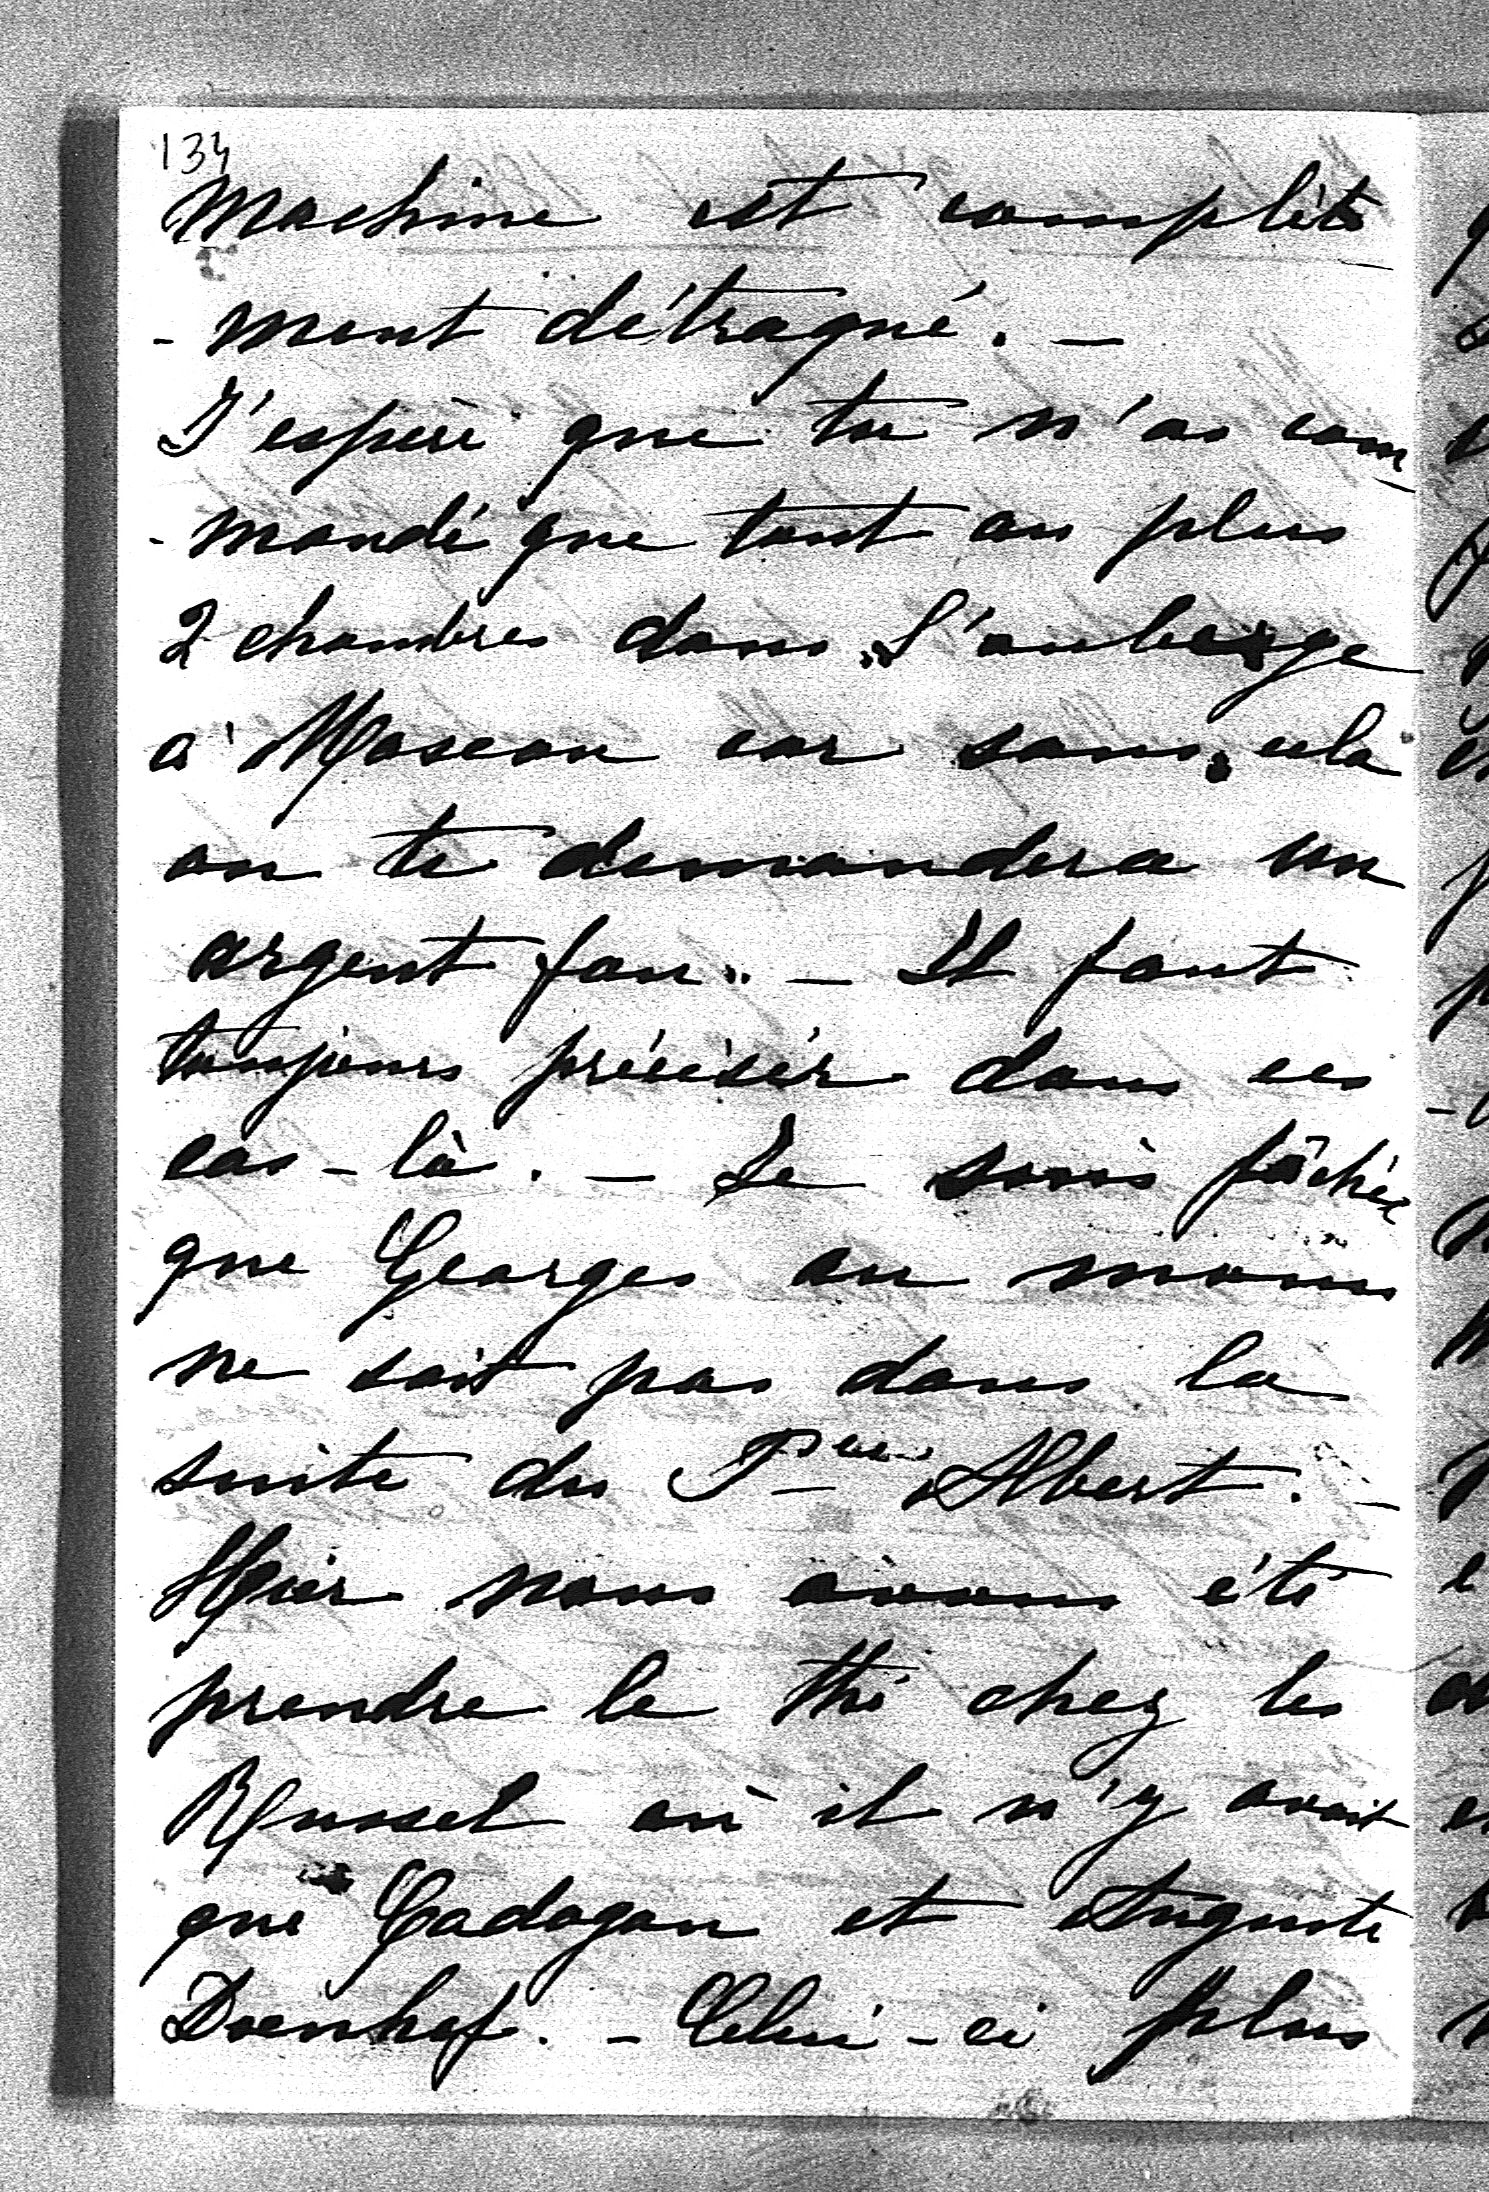 134
machine est complète
- ment détraqué. —
J'espère que tu n'as com
- mandé que tout au plus
2 chambres dans l'auberge
à Moscou car sans cela
on te demandera un
argent fou. — Il faut
toujours préciser dans ces
cas-là. — Je suis fâchée
que Georges au moins
ne soit pas dans la
suite du Pce Albert. —
Hier nous avons été
prendre le thé chez les
Russel où il n'y avait
que Cadogan et Auguste
Doenhof. — Celui-ci plus